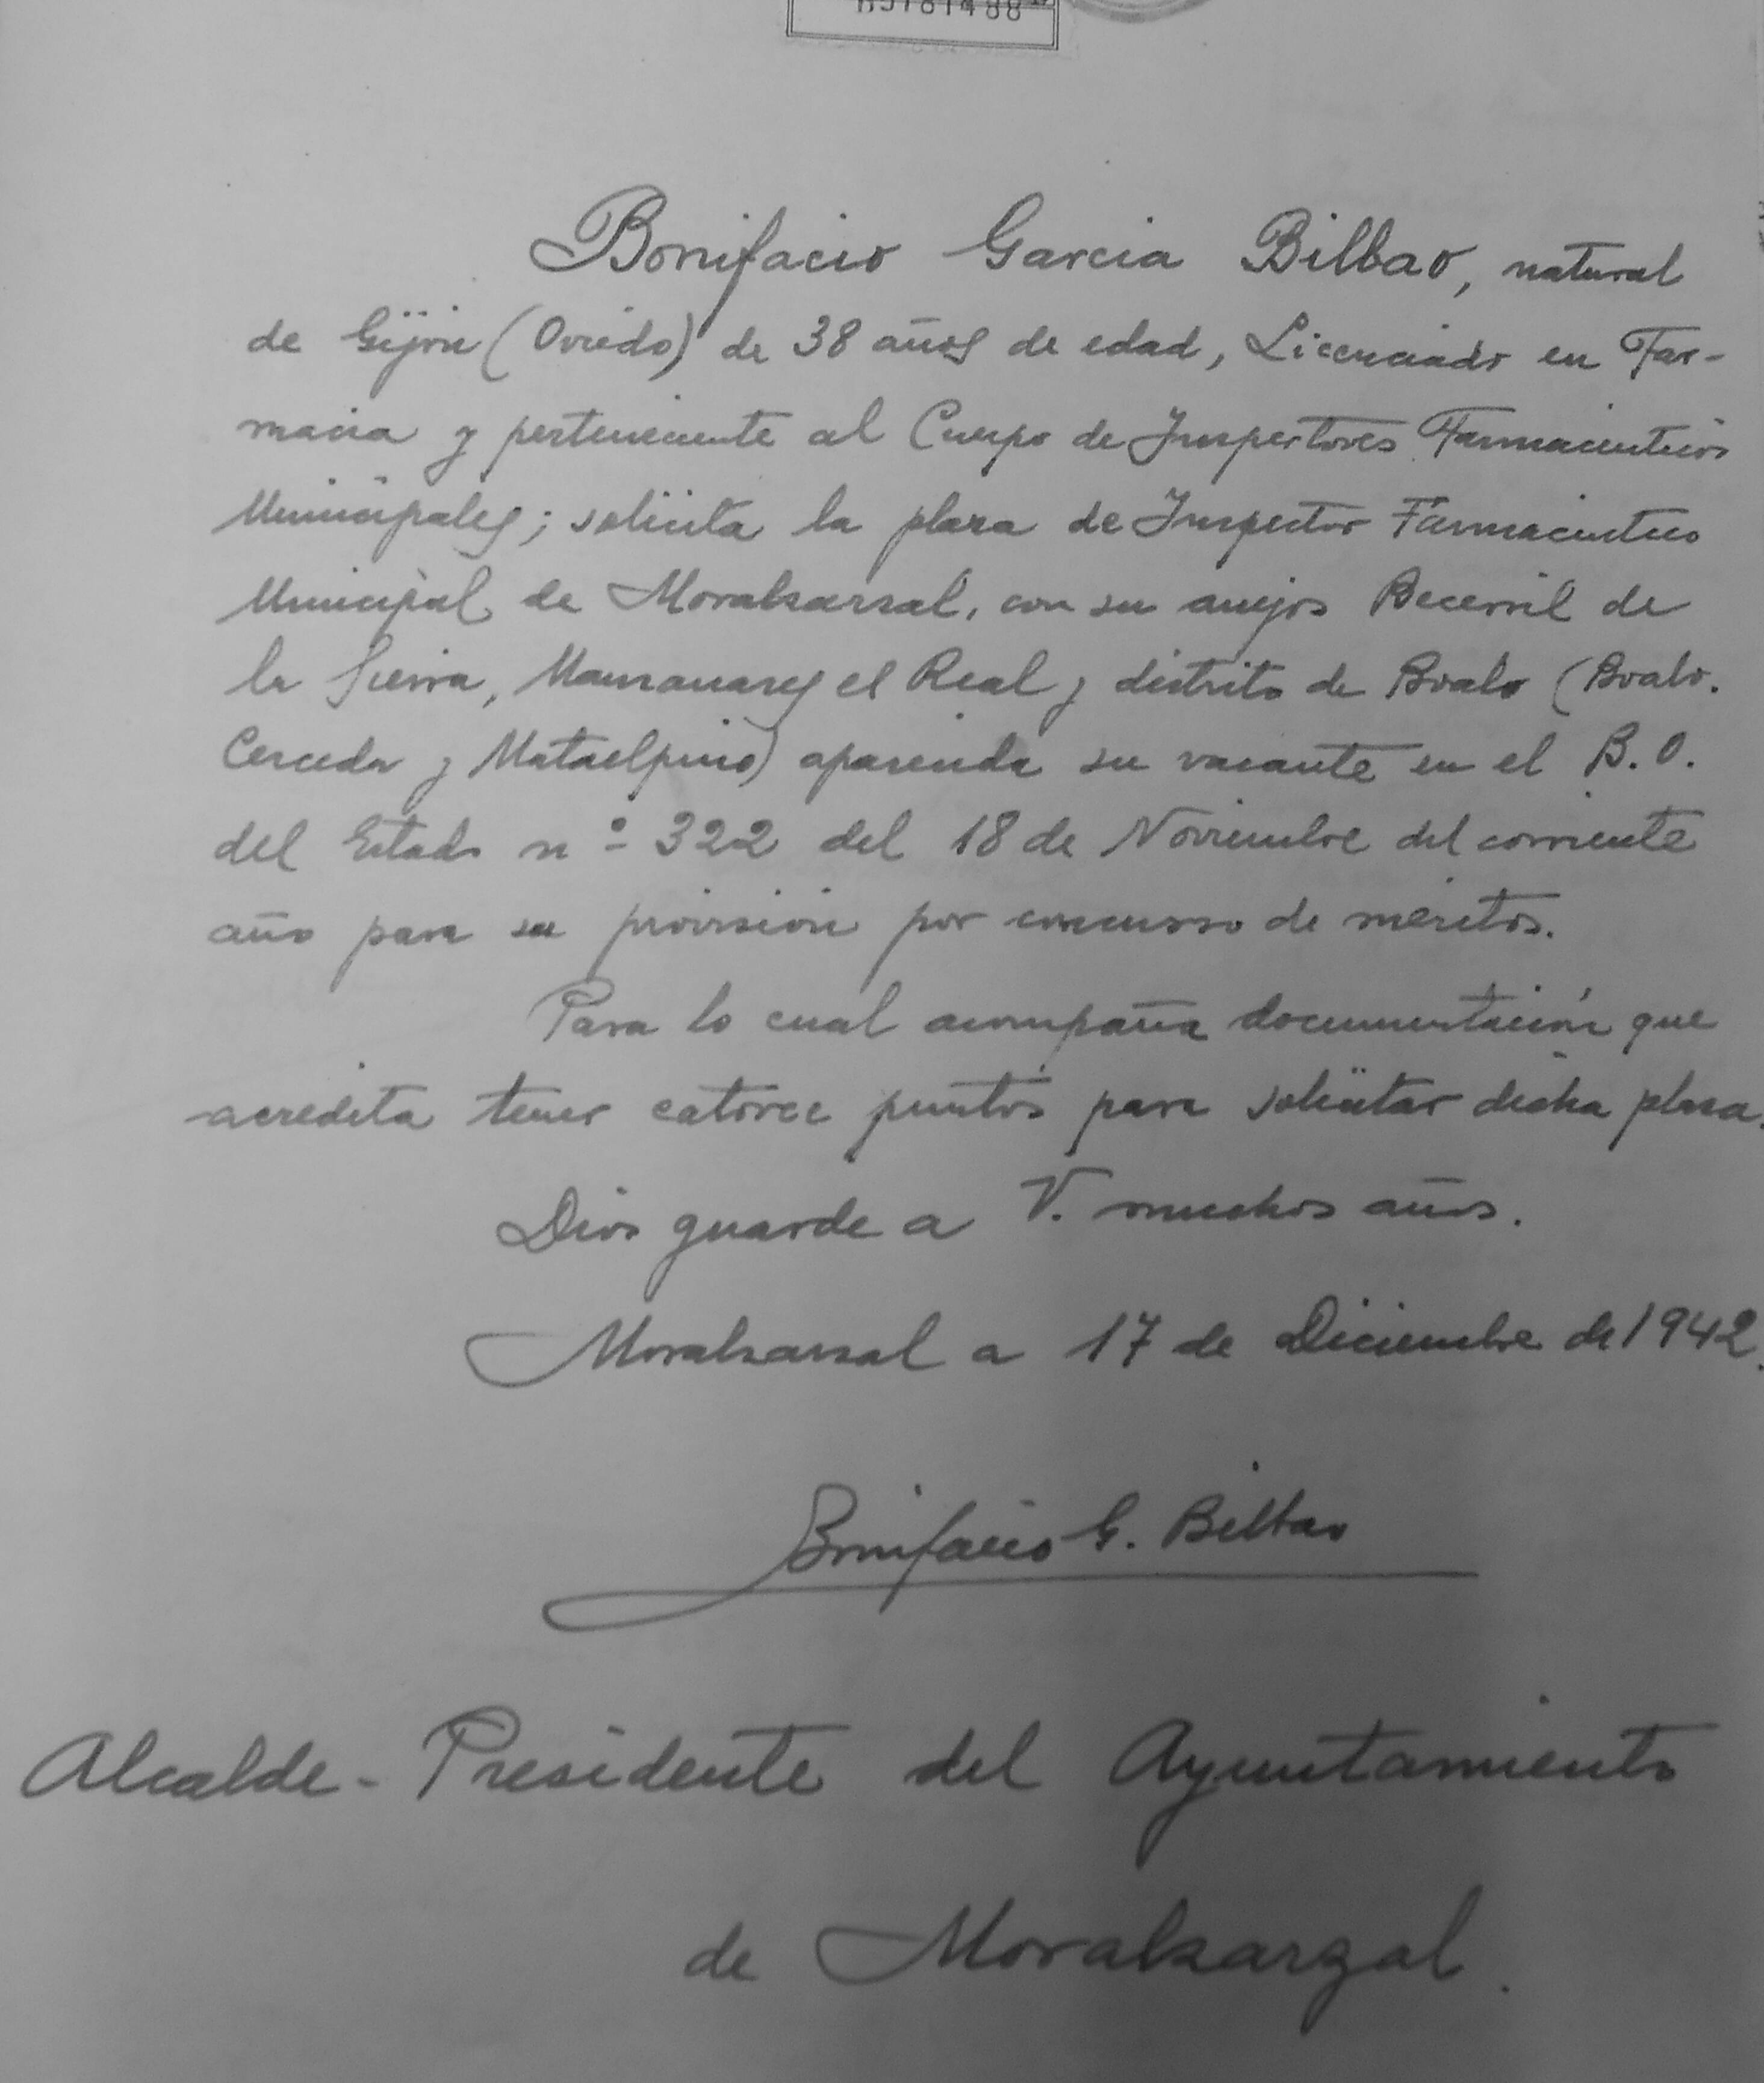 Bonifacio Garcia Bilbao, natural
de Gijón (Oviedo) de 38 años de edad, Licenciado en Far-
macia y perteneciente al Cuerpo de Inspectores Farmacéuticos
Municipales; solicita la plaza de Inspector Farmacéutico
Municipal de Moralzarzal, con su anejos Becerril de
la Sierra, Manzanares el Real y distrito de Boalo (Boalo.
Cerceda y Mataelpino) aparecida su vacante en el B.O.
del Estado nº 322 del 18 de Noviembre del corriente
año para su provisión por concurso de méritos.
Para lo cual acompaña documentación que
acredita tener catorce puntos para solicitar dicha plaza.
Dios guarde a V. muchos años.
Moralzarzal a 17 de Diciembre de 1942.
Bonifacio G. Bilbao
Alcalde-Presidente del Ayuntamiento
de Moralzarzal.